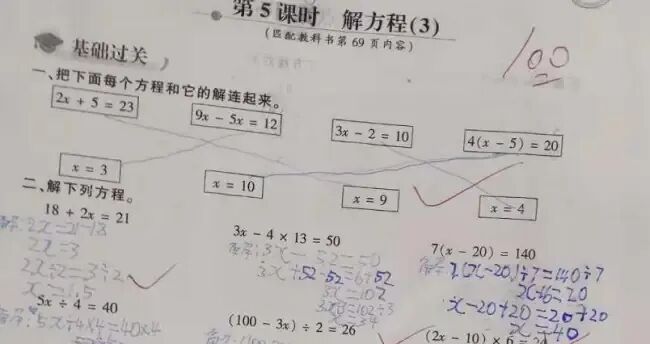 第5课时 解方程(3)
(匹配教科书第69页内容)
100
基础过关
一、把下面每个方程和它的解连起来。
2x + 5 = 23
9x - 5x = 12
3x - 2 = 10
4(x - 5) = 20
x = 3
x = 10
x = 9
x = 4
二、解下列方程。
18 + 2x = 21
2x=3
2x÷2=3÷2
x=1.5
3x - 4 × 13 = 50
3x=102
x=34
7(x - 20) = 140
解:7(x-20)÷7=140÷7
x-20+20=20+20
x=40
5x ÷ 4 = 40
解:5x÷4×4=40×4
(100 - 3x) ÷ 2 = 26
(2x - 10) × 6 = 24